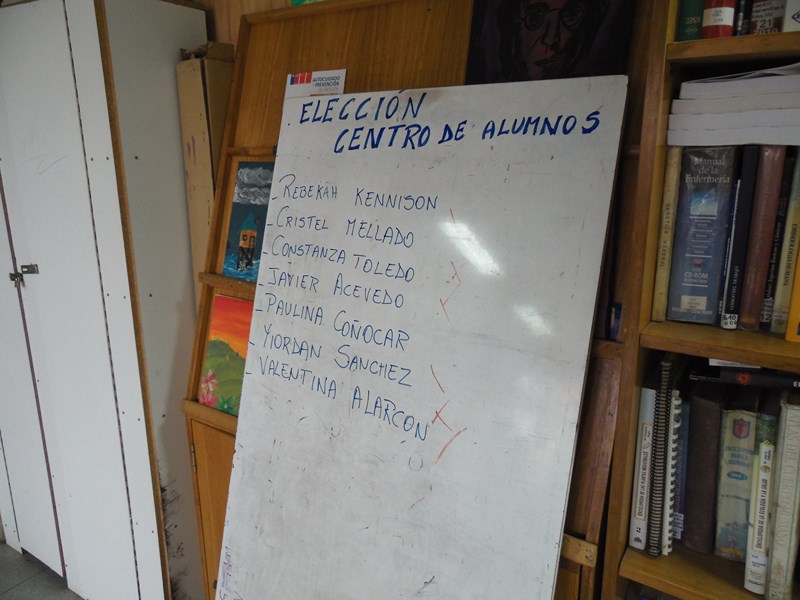 AUTOCUIDADO
Y PREVENCIÓN
ELECCIÓN
CENTRO DE ALUMNOS
- REBEKAH KENNISON
- CRISTEL MELLADO
- CONSTANZA TOLEDO
- JAVIER ACEVEDO
- PAULINA COÑOCAR
- YIORDAN SANCHEZ
- VALENTINA ALARCON
21
Manual
de la
Enfermería
CD-ROM